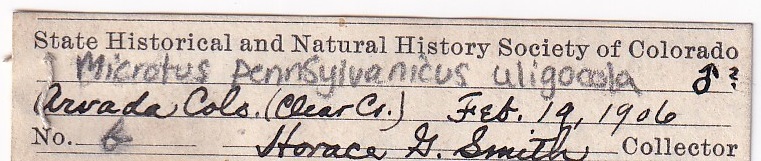 State Historical and Natural History Society of Colorado
Microtus pennsylvanicus uligocola ♂?
Arvada Colo. (Clear Cr.) Feb. 19, 1906
No. 6 Horace G. Smith Collector